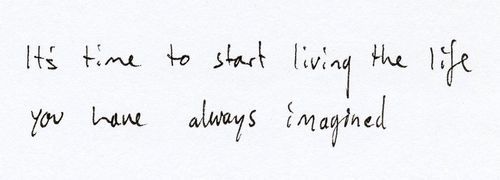 It's time to start living the life
you have always imagined